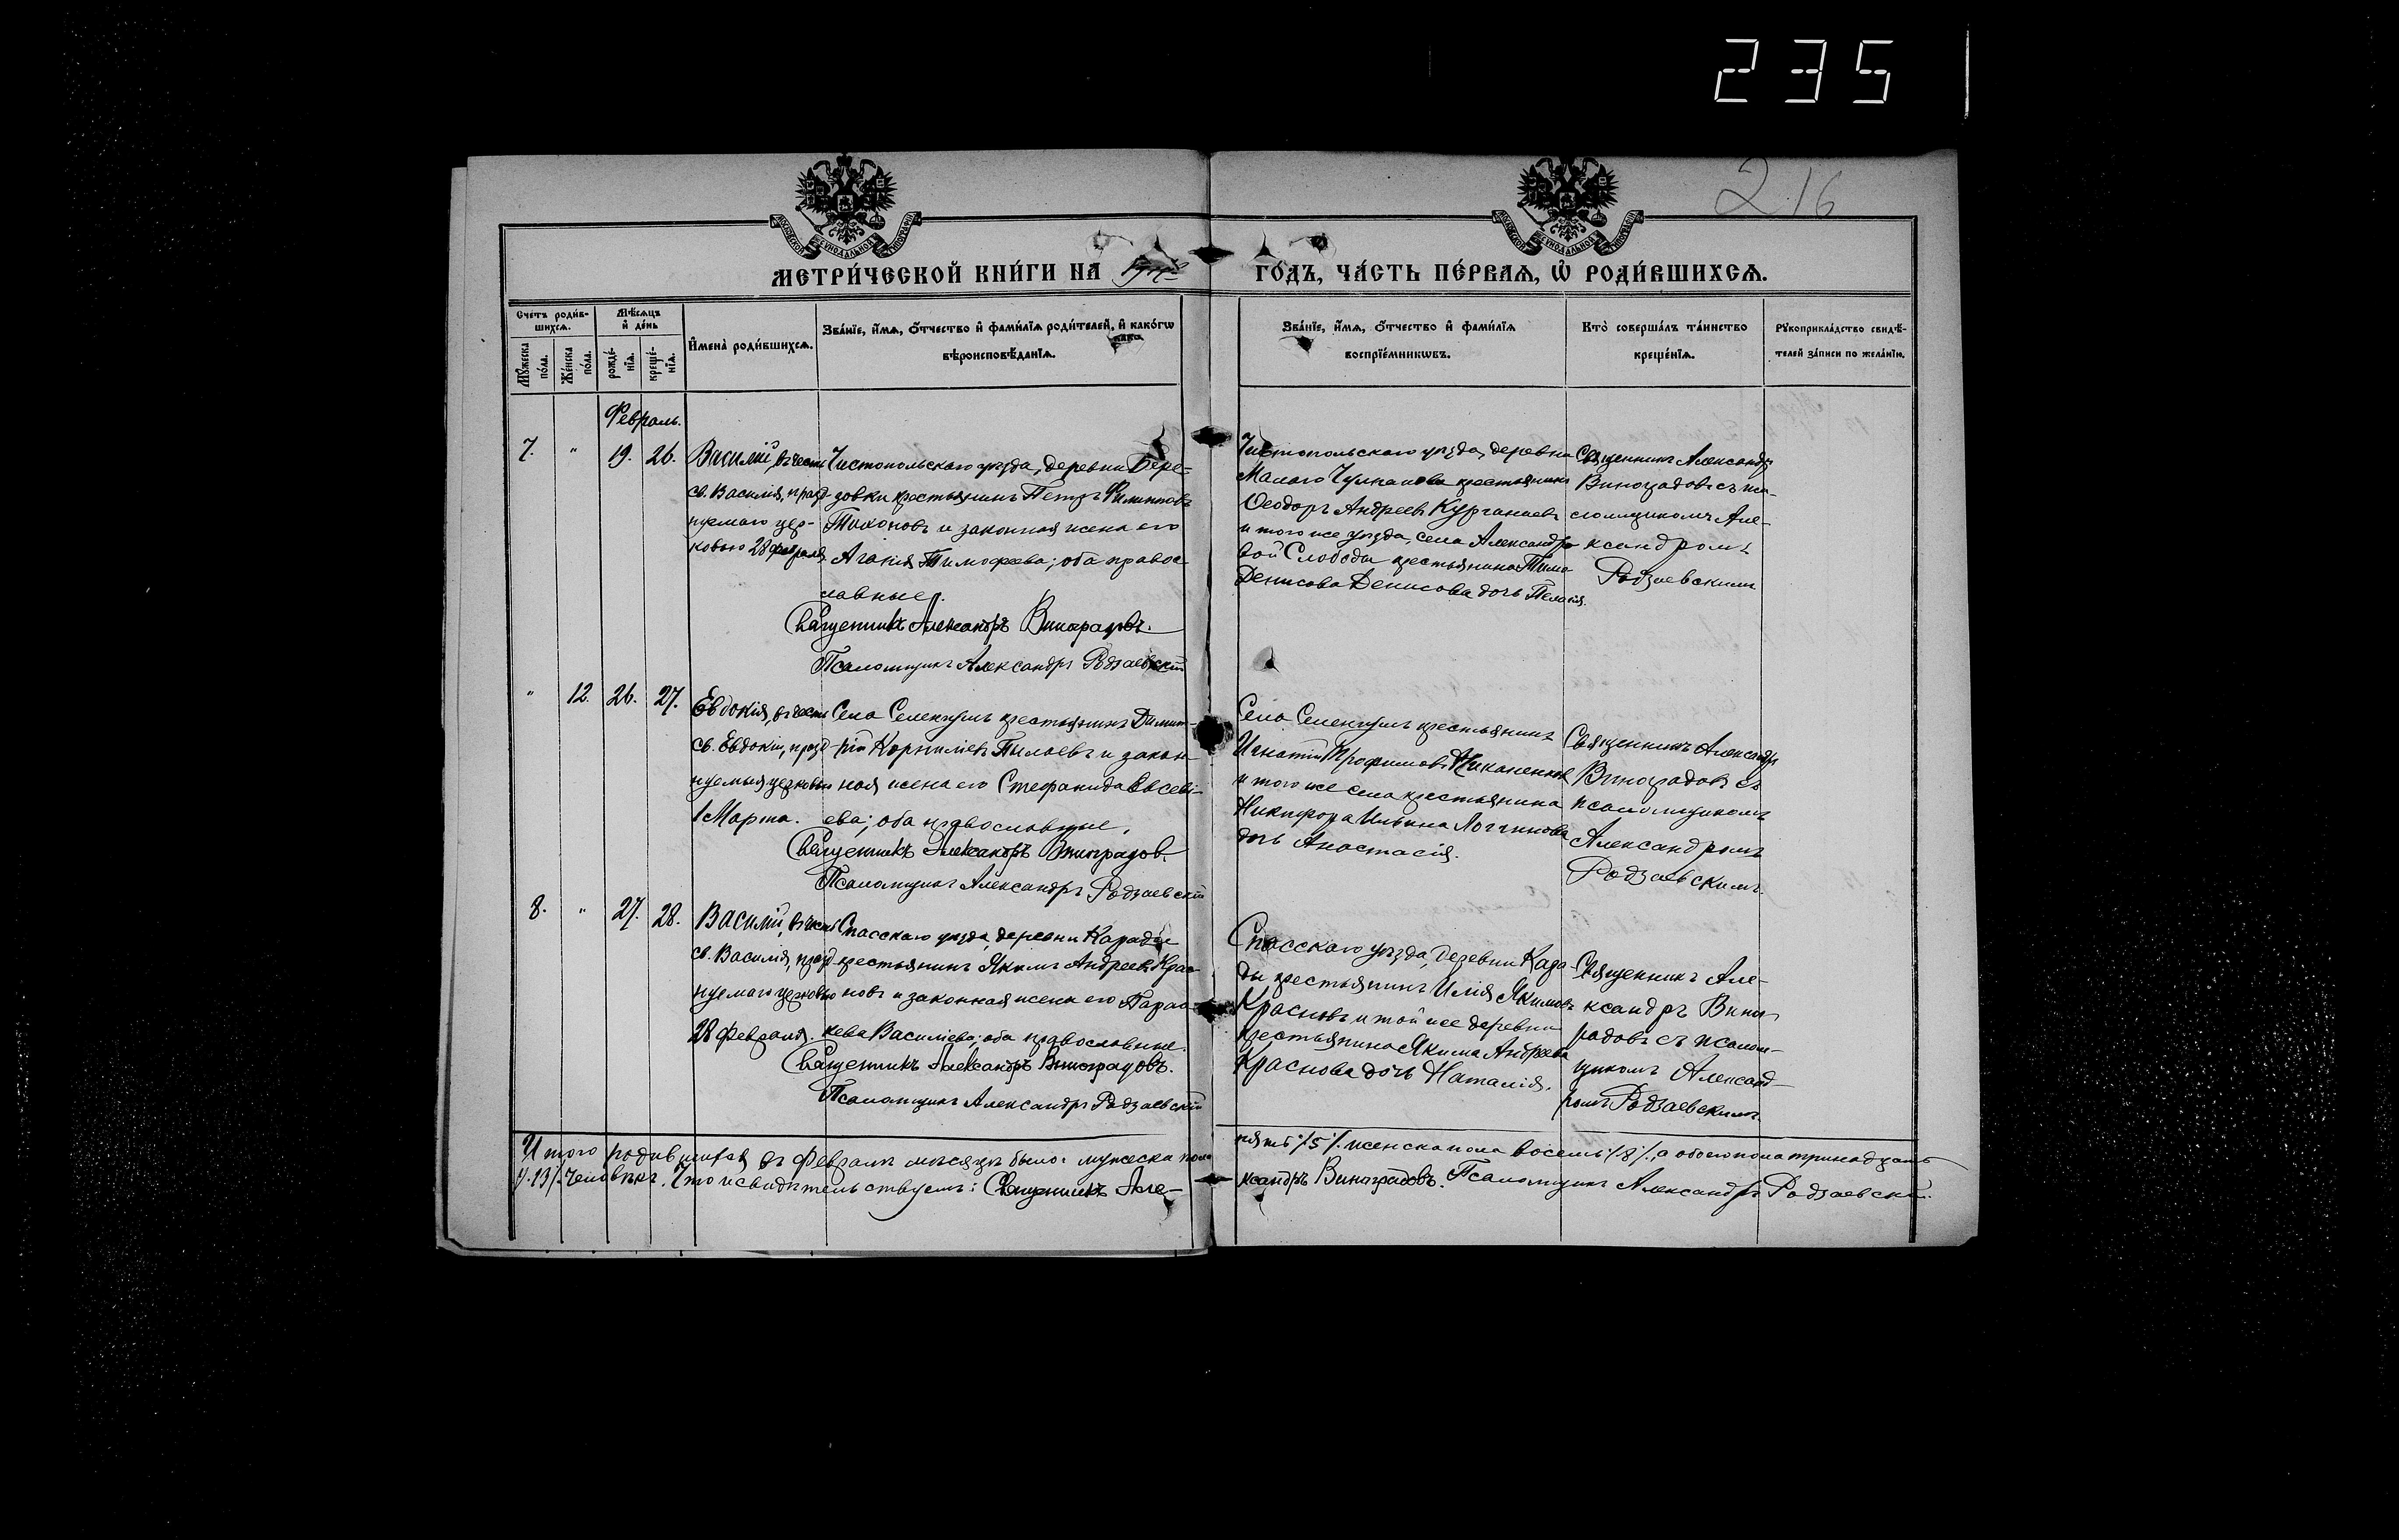 235
216
МЕТРИ́ЧЕСКОЙ КНИ́ГИ НА
ГО́ДЪ, ЧА́СТЬ ПЕ́РВАЯ, Ѡ҆ РОДИ́ВШИХСѦ.
Счетъ роди́в-
шихсѧ.
Мѣ́сѧцъ
и҆ де́нь
Мꙋ́жеска
по́ла.
Же́нска
по́ла.
рожде́-
нїѧ.
креще́-
нїѧ.
И҆мена̀ роди́вшихсѧ.
Зва́нїе, и҆́мѧ, ѻ҆́тчество и҆ фами́лїѧ роди́телей, и҆ како́гѡ
вѣроисповѣ́данїѧ.
Зва́нїе, и҆́мѧ, ѻ҆́тчество и҆ фами́лїѧ
воспрїе́мникѡвъ.
Кто̀ соверша́лъ та́инство
креще́нїѧ.
Рꙋкоприкла́дство свидѣ́-
телей за́писи по жела́нїю.
Февраль.
7. " 19. 26.
Василій, въ честь
св. Василія, празд-
нуемаго цер-
ковью 28 февраля
Чистопольскаго уѣзда, деревни Бере-
зовки крестьянинъ Петръ Филипповъ
Тихоновъ и законная жена его
Агафія Тимофеева; оба правос-
лавные.
Священникъ Александръ Виноградовъ.
Псаломщикъ Александръ Родзаевскій
Чистопольскаго уѣзда, деревни
Малаго Чулпанова крестьянинъ
Ѳеодоръ Андреевъ Курганаевъ
и того же уѣзда, села Александро-
вой Слободы крестьянина
Денисова Денисова дочь Пелагія.
Священникъ Александръ
Виноградовъ съ пса-
ломщикомъ Але-
ксандромъ
Родзаевскимъ
" 12. 26. 27.
Евдокія, въ честь
св. Евдокіи, празд-
нуемыя церковью
1 Марта.
Села Селенгушъ крестьянинъ Димит-
рій Корниліевъ Пылаевъ и закон-
ная жена его Стефанида Евсеві-
ева; оба православные.
Священникъ Александръ Виноградов.
Псаломщикъ Александръ Родзаевскій
Село Селенгушъ крестьянинъ
Игнатій Трофимовъ
и того же села крестьянина
Никифора Ильина Логгинова
дочь Анастасія.
Священникъ Александръ
Виноградовъ съ
псаломщикомъ
Александромъ
Родзаевскимъ.
8. " 27. 28.
Василій, въ честь
св. Василія, празд-
нуемаго церковью
28 февраля.
Спасскаго уѣзда, деревни Карады
крестьянинъ Якимъ Андреевъ Крас-
новъ и законная жена его Парас-
кева Василіева; оба православные.
Священникъ Александръ Виноградовъ.
Псаломщикъ Александръ Родзаевскій
Спасскаго уѣзда, деревни Кара-
ды крестьянинъ Илія Якимовъ
Красновъ и той же деревни
крестьянина Якима Андреева
Краснова дочь Наталія.
Священникъ Але-
ксандръ Виног-
радовъ съ псалом-
щикомъ Александ-
ромъ Родзаевскимъ.
Итого родившихся въ февралѣ мѣсяцѣ было: мужеска пола
пять /5/. женска пола восемь /8/, а обоего пола тринадцать
/13/ человѣкъ. Что и свидѣтельствуемъ: Священникъ Але-
ксандръ Виноградовъ. Псаломщикъ Александръ Родзаевскій.